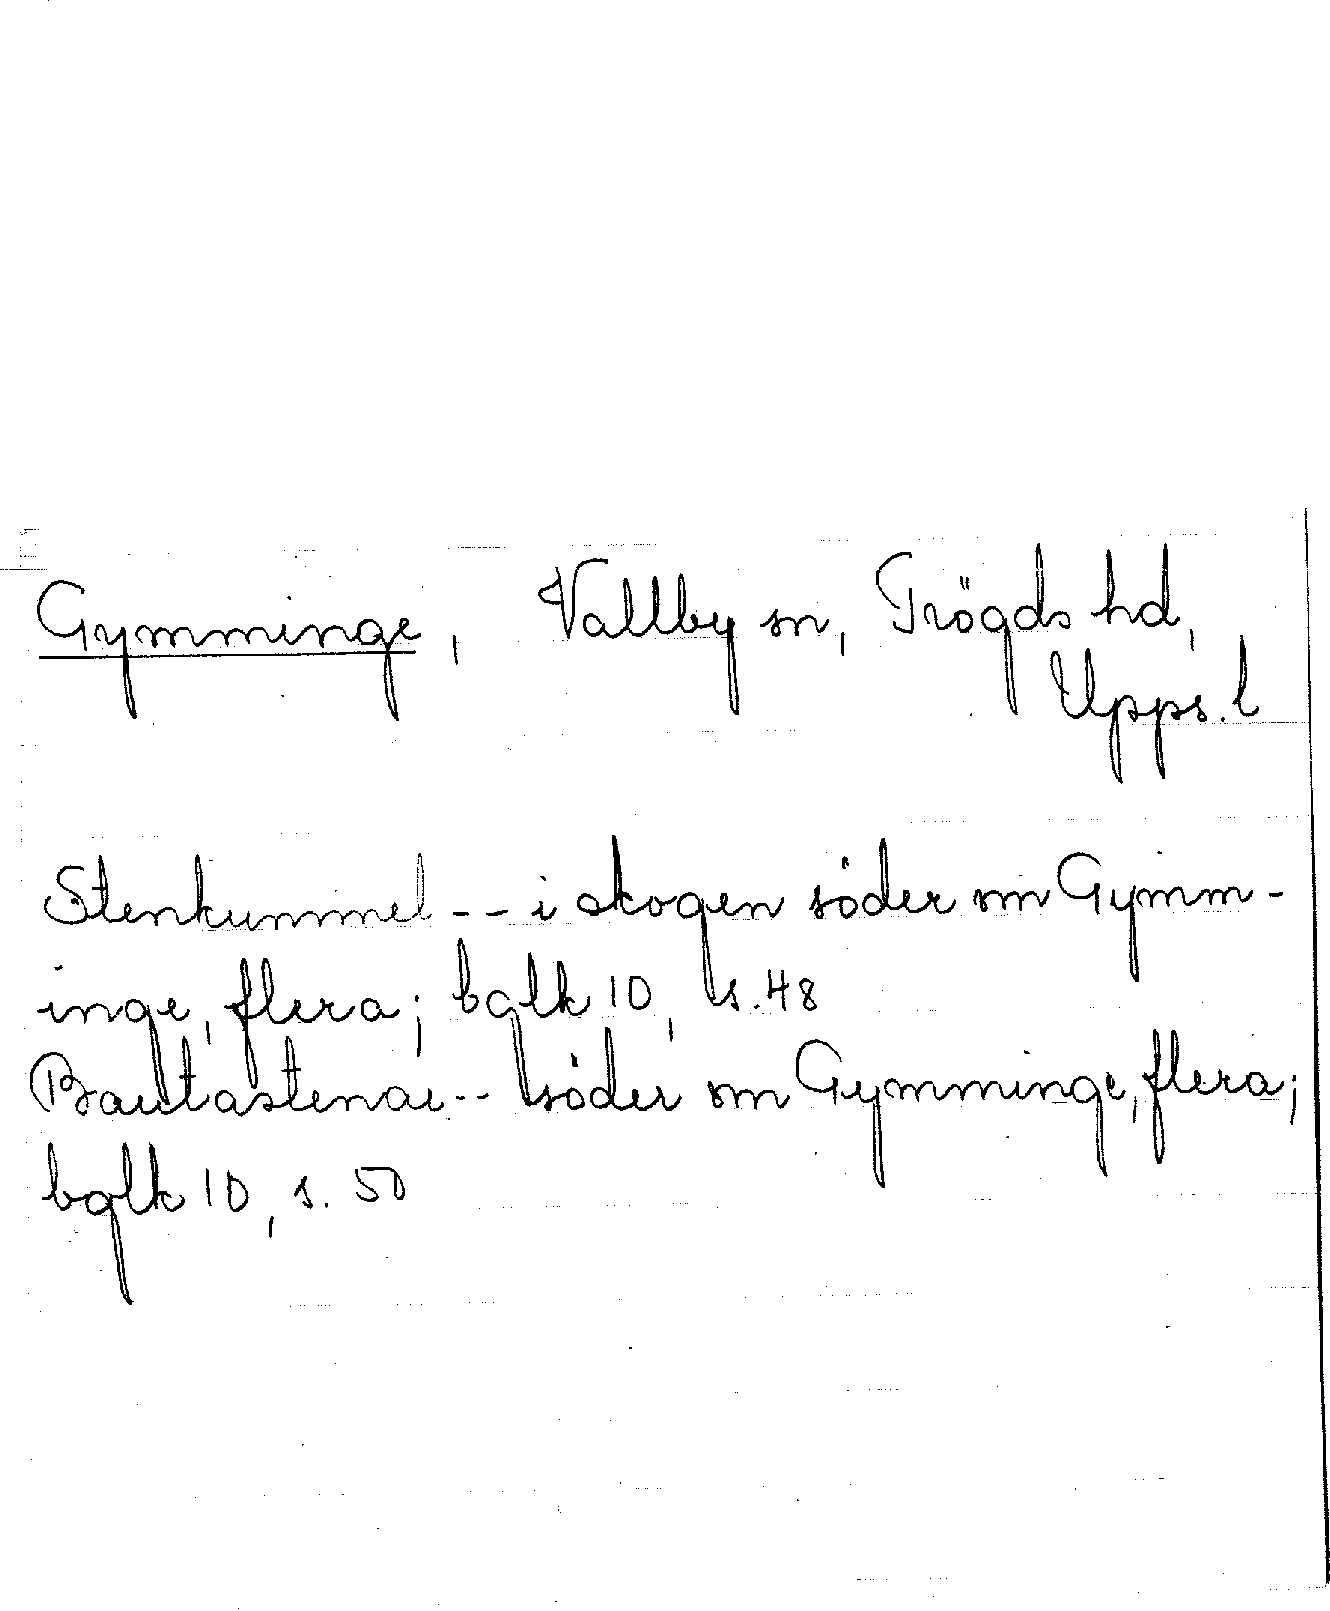 Gymminge, Vallby sn, Trögds hd,
Upps. l
Stenkummel -- i skogen söder om Gymm-
inge, flera; bglk 10, s. 48
Bautastenar -- söder om Gymminge, flera;
bglk 10, s. 50